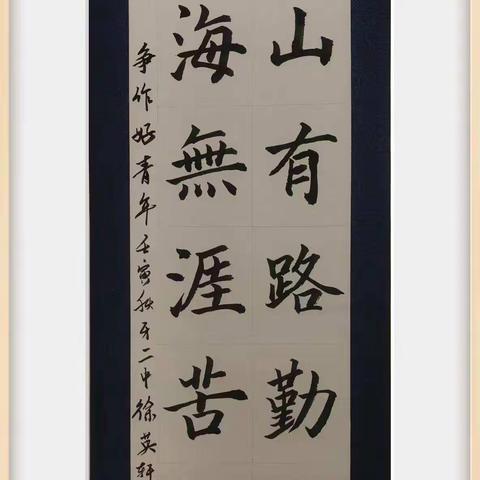 山有路勤
海無涯苦
争作好青年壬寅秋月二中徐英轩